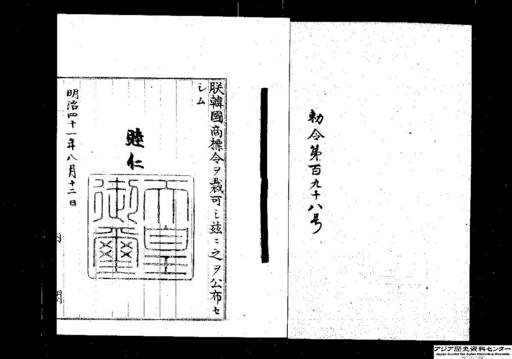 勅令第百九十八号
朕韓國商標令ヲ裁可シ茲ニ之ヲ公布セ
シム
睦仁
天皇
御璽
明治四十一年八月十二日
アジア歴史資料センター
Japan Center for Asian Historical Records